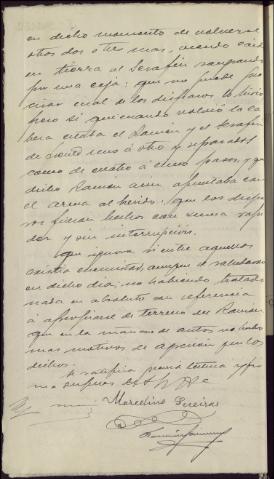 en dicho momento de volverse
otros dos ó tres mas, cuando caido
en tierra al Serafín
por una caja; que no puede pre-
cisar cual de los disparos le hirió
pero sí que cuando volvió la ca-
beza estaba el Ramón y el Serafín
de uno á otro separados
como de cuatro á cinco pasos y que
dicho Ramon aun apuntaba con
el arma al herido; que los dispa-
ros fueron hechos con suma rapi-
dez y sin interrupción.
Que ignora si entre aquellos
existia enemistad, aunque se saludaron
en dicho dia, no habiendo tratado
nada en absoluto con referencia
á de terreno del Ramón
que en la mañana de autos no hubo
mas motivos de que los
dichos.
Se ratifica previa lectura y fir-
ma despues de S. S.
Marcelino Pereira